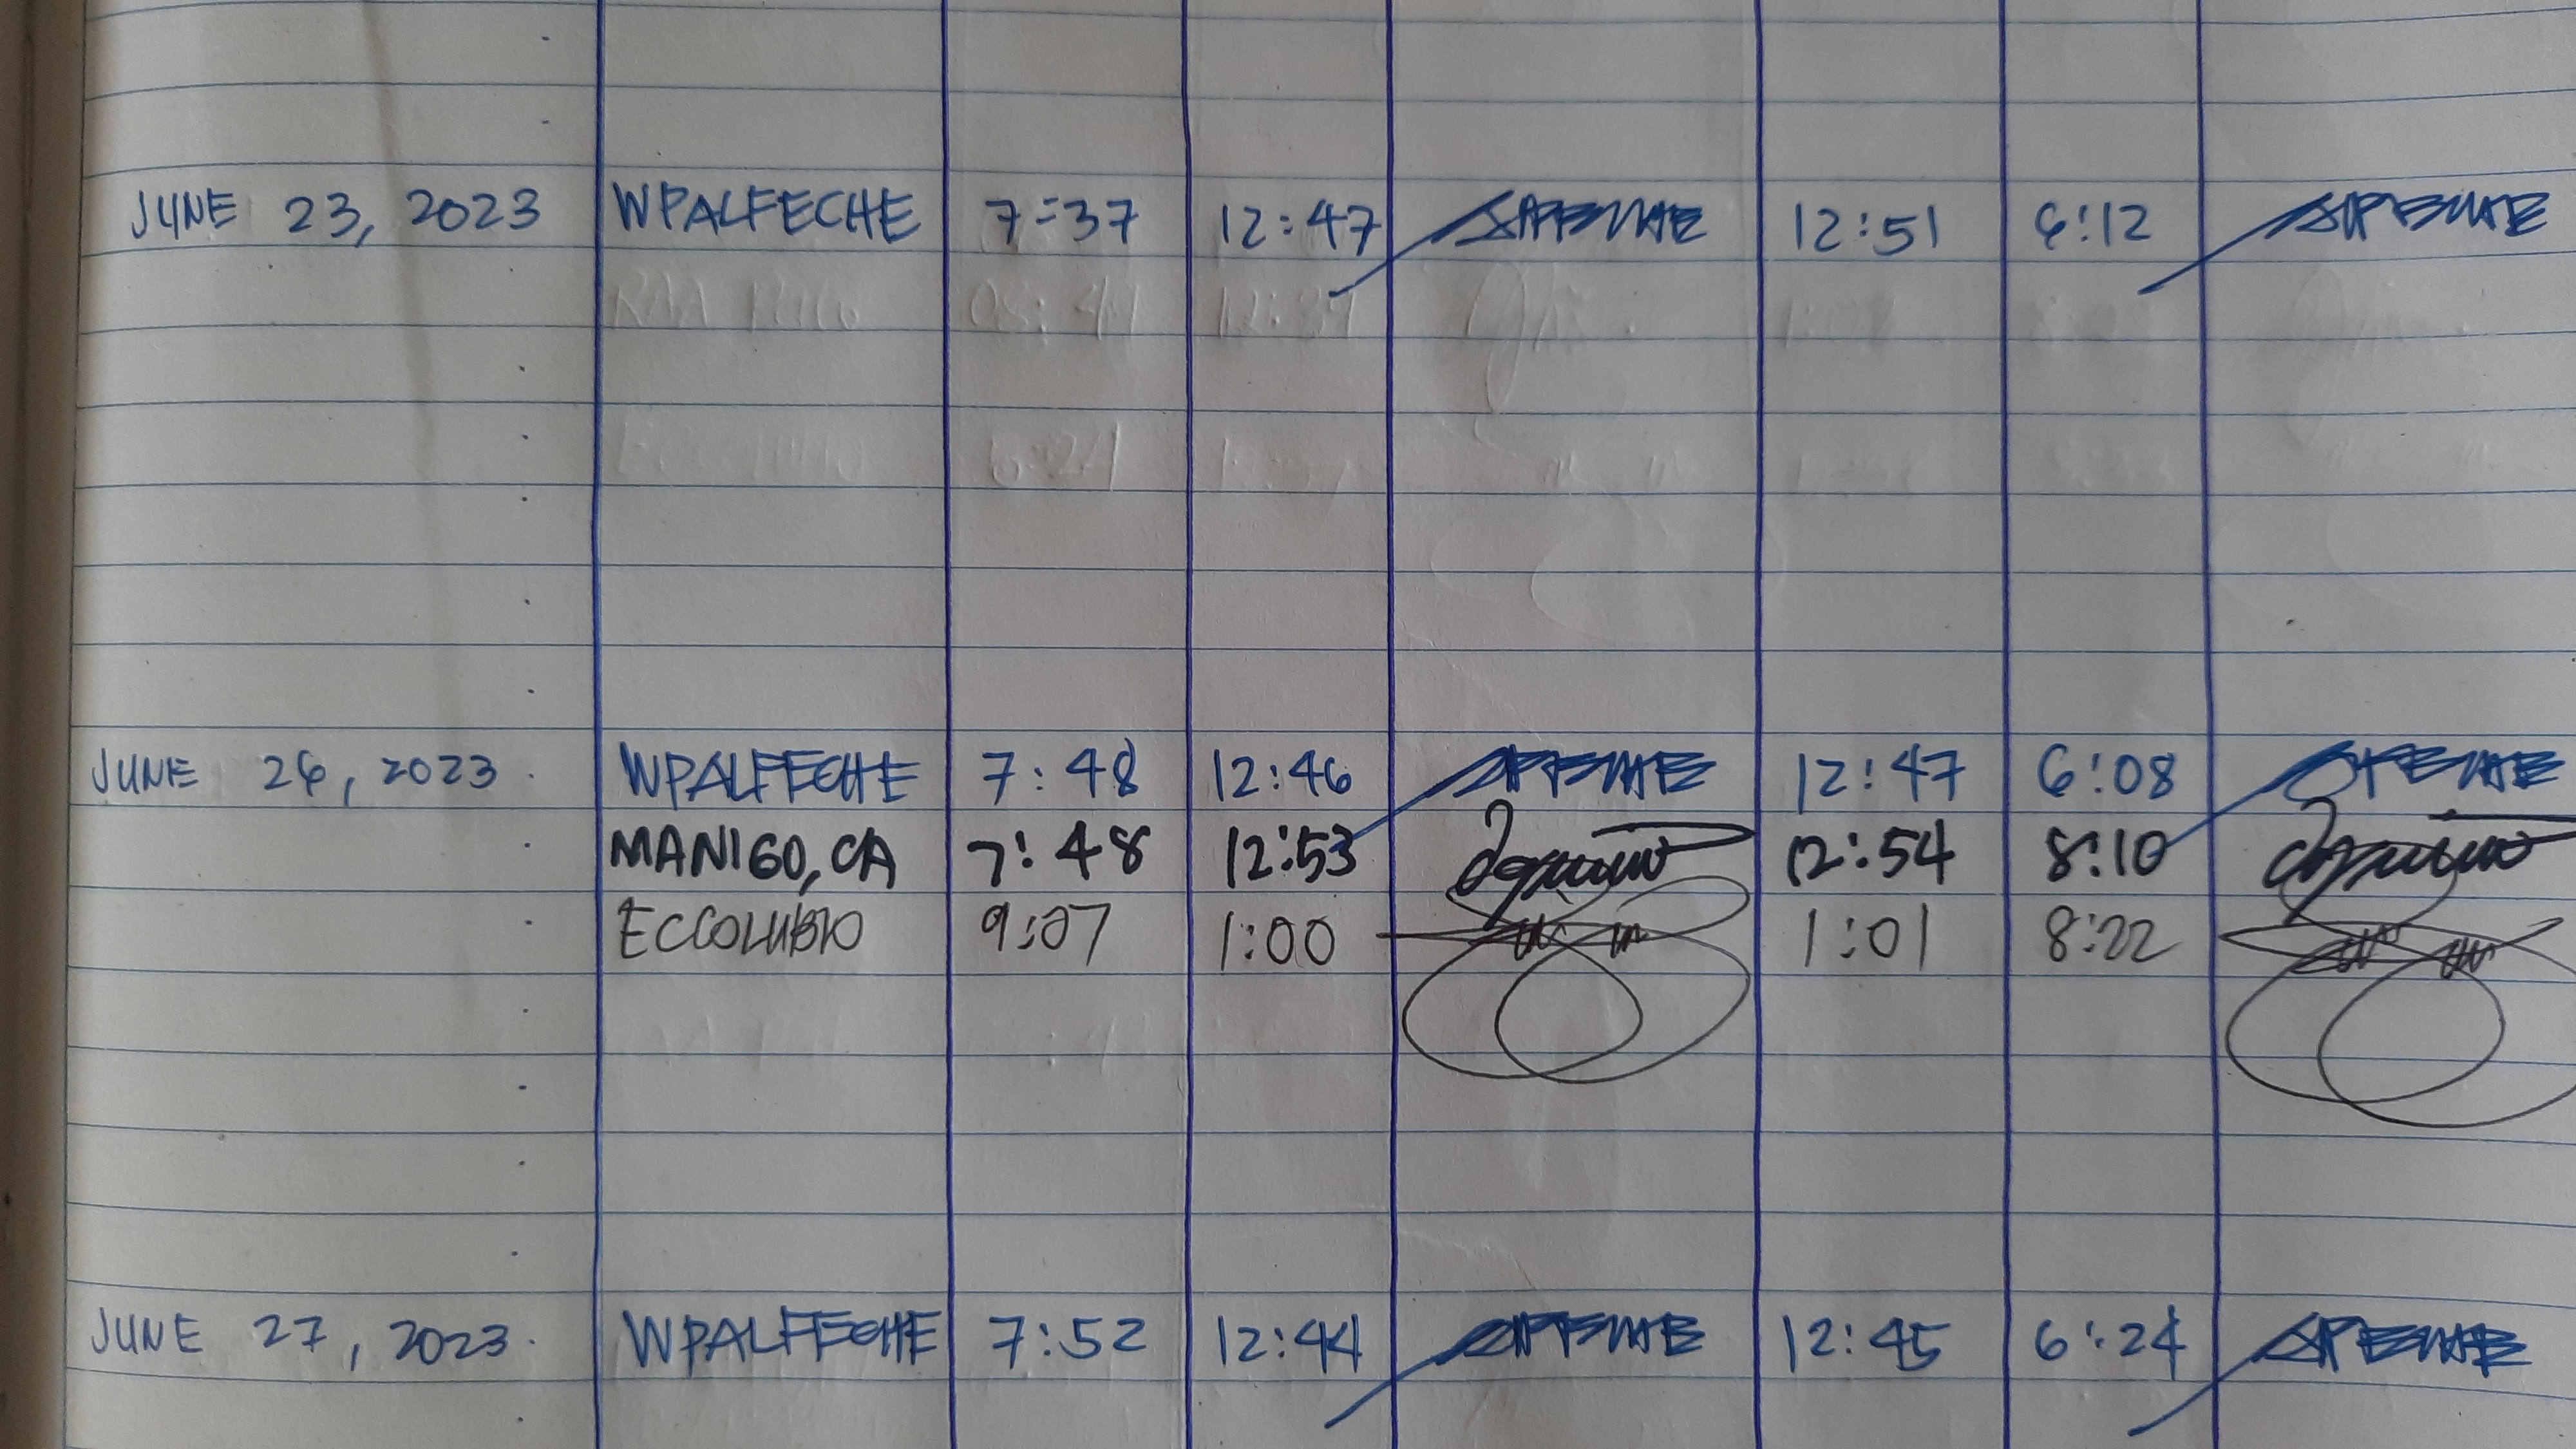 JUNE 23, 2023 WPALFECHE 7:37 12:47 12:51 6:12
JUNE 26, 2023 WPALFECHE 7:48 12:46 12:47 6:08
MANIGO, CA 7:48 12:53 12:54 8:10
ECCOLUBIO 9:07 1:00 1:01 8:22
JUNE 27, 2023 WPALFECHE 7:52 12:44 12:45 6:24